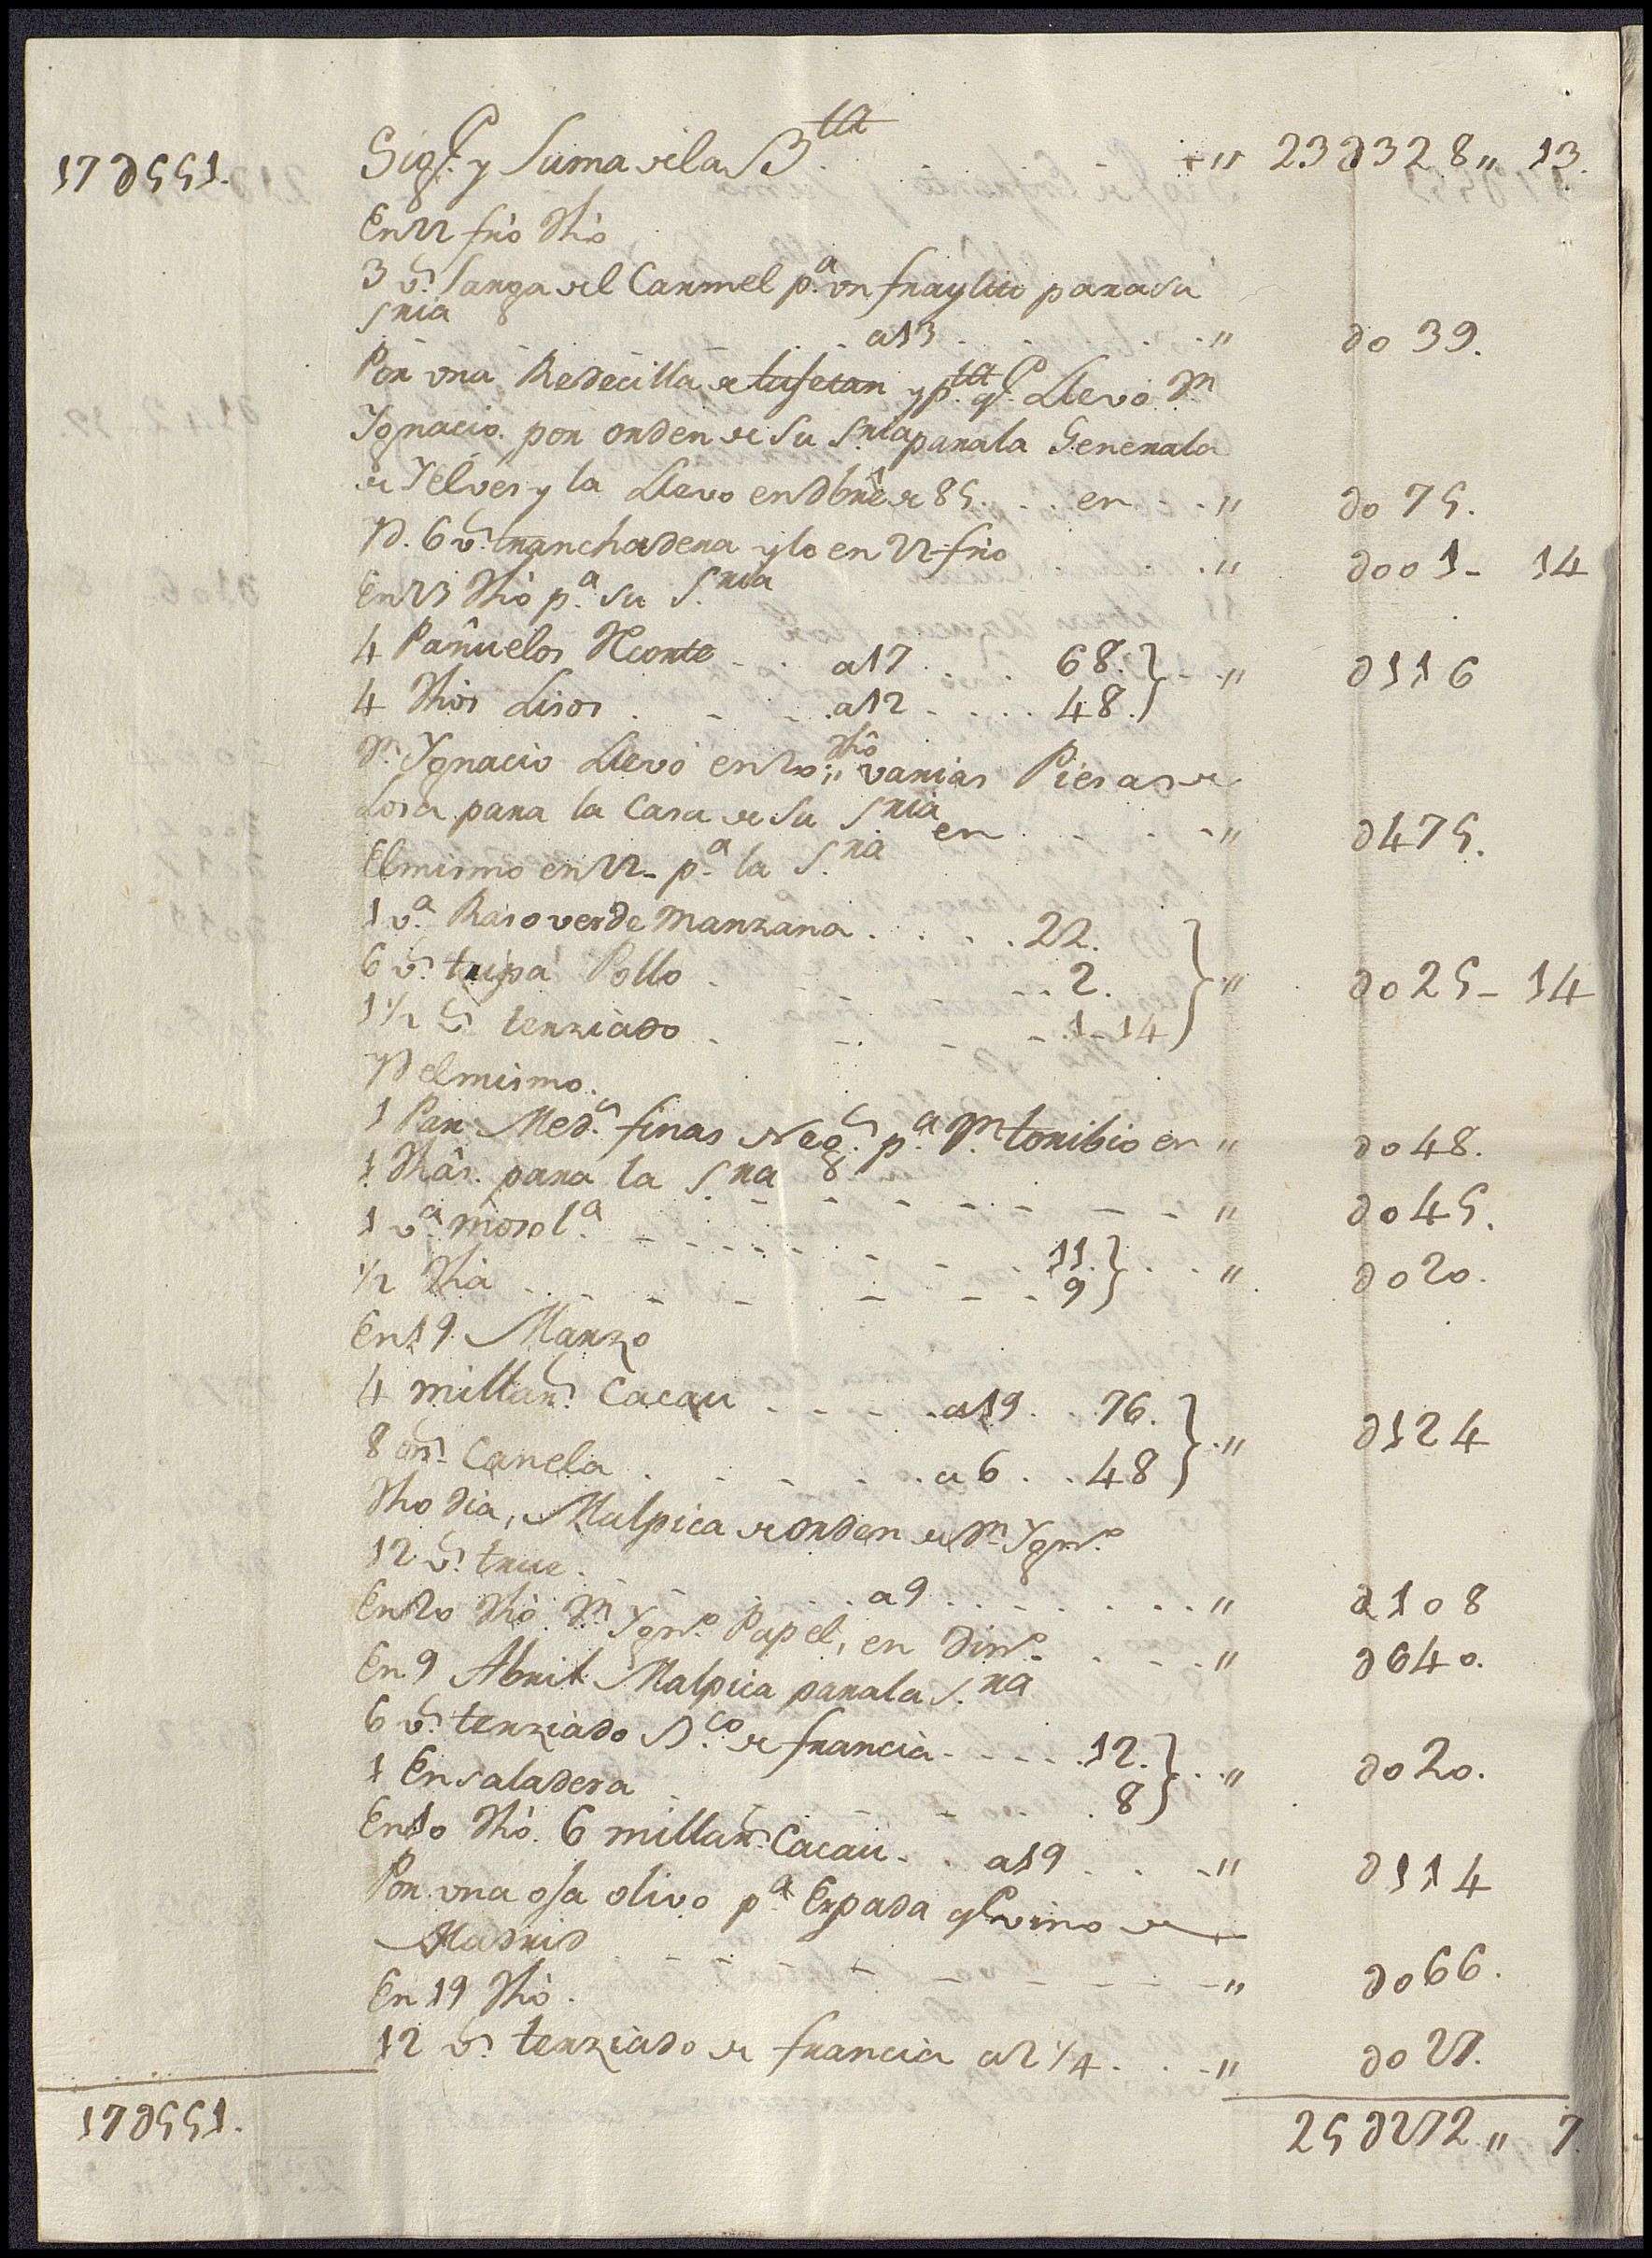 17∂551. Sigᵉ y Suma de la B.ta " 23∂328 " 13.
En 22 frio dho
3 v.s Sarga del Carmel p.a un fraylito para su
Sria a 13 " ∂039.
Por una Redecilla de tafetan y p.ta q.e Llevó Dn
Ygnacio por orden de Su Sria para la Generala
de Yelves y la Llevo en dbre de 85. en " ∂075.
Yd. 6 v.s tranchadera ylo en 22 frio " ∂001 - 14
En 23 dho p.a su S.ria
4 Pañuelos a 17 68. } " ∂116
4 dhos Lisos a 12 48. }
Dn Ygnacio Llevó en 20 " dho varias Piesas de
Losa para la Casa de Su Sria en " ∂475.
El mismo en 22 - p.a la S.ra
1 v.a Raso verde Manzana 22. }
6 v.s tripa Pollo 2. } " ∂025 - 14
1 1/2 v.s terziado 1 - 14 }
Yd el mismo.
1 Par Med.s finas Neg.s p.a Dn toribio en " ∂048.
1 dhas. para la S.ra " ∂045.
1 v.a mosol.a 11. } " ∂020.
1/2 dha 9 }
En 19 Marzo
4 millar.s Cacau a 19 76. } " ∂124
8 on.s Canela a 6 48 }
dho dia, Malpica de orden de Dn Ygn.o
12 v.s true. a 9 " ∂108
En 20 dho Dn Ygn.o Papel, en din.o " ∂640.
En 9 Abril Malpica para la S.ra
6 v.s terziado B.co de francia 12. } " ∂020.
1 Ensaladera 8 }
En 10 dho. 6 millar.s Cacau a 19 " ∂114
Por una oja olivo p.a Espada q.e vino de
Madrid " ∂066.
En 19 dho.
12 v.s terziado de francia a 2 1/4 " ∂027.
17∂551. 25∂272 " 7.